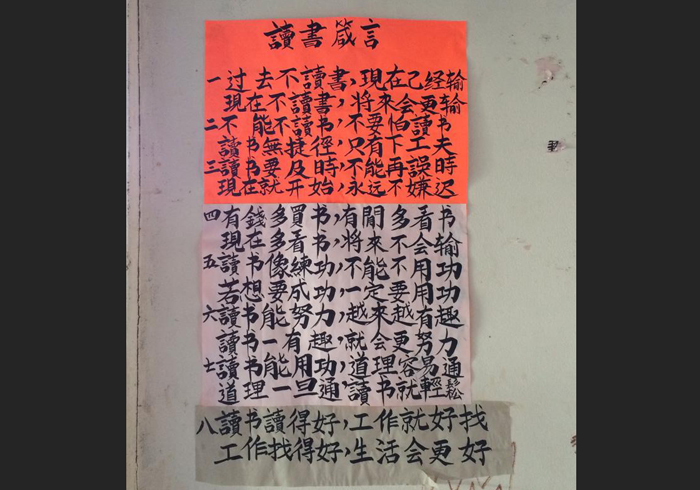 讀書箴言
一过去不讀書，現在己经输
現在不讀書，將來会更输
二不能不讀书，不要怕讀书
讀书無捷徑，只有下工夫
三讀书要及時，不能再誤時
現在就开始，永远不嫌迟
四有錢多買书，有閒多看书
現在多看书，將來不会输
五讀书像練功，不能不用功
若想要成功，一定要用功
六讀书能努力，越來越有趣
讀书一有趣，就会更努力
七讀书能用功，道理容易通
道理一旦通，讀书就輕鬆
八讀书讀得好，工作就好找
工作找得好，生活会更好